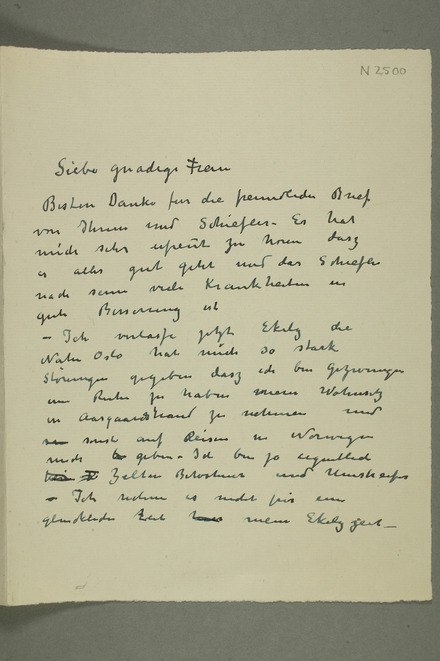 N 2500
Siebe gnadige Frau
Besten Danke fur die freundliche Brief
von Ihnen und Schiefler. Es hat
mich sehr erfreut zu horen dasz
es alles gut geht und das Schiefler
nach seine viele Krankheiten in
gute Besserung ist
– Ich verlasse jetzt Ekely die
Nahe Oslo hat mich so stark
Störungen gegeben dasz ich bin gezwungen
um Ruhe zu haben meine Wohnsitz
in Aasgaardstrand zu nehmen und
sonst auf Reisen in Norwegen
mich geben – Ich bin ja eigentlich
Zelten Bewohner und Umstreifer
– Ich rechne es nicht für eine
glückliche Zeit mein Ekelyzeit –